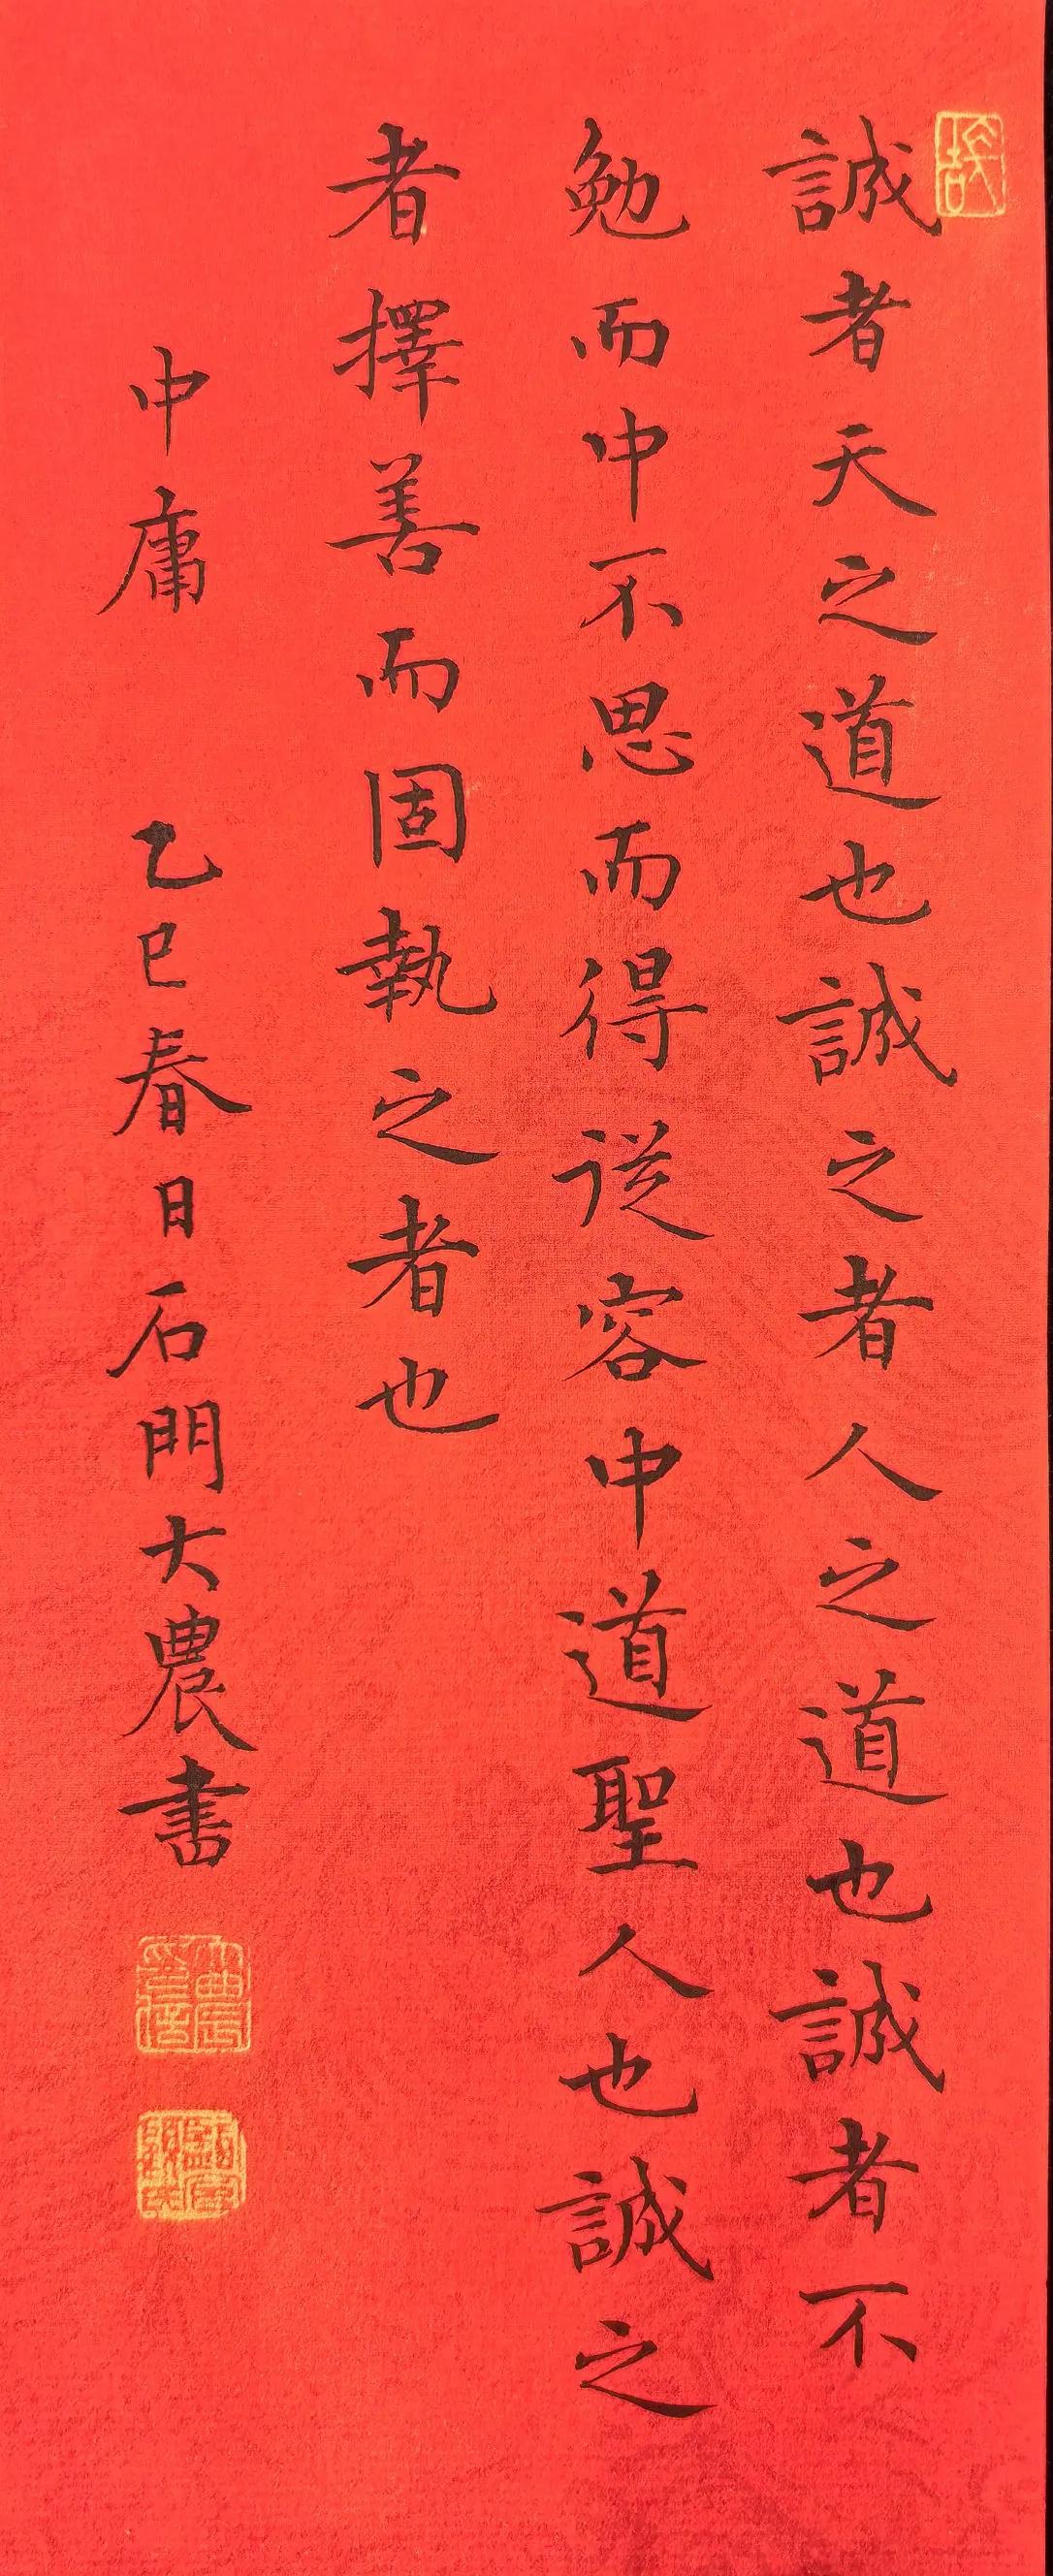 誠者天之道也誠之者人之道也誠者不
勉而中不思而得從容中道聖人也誠之
者擇善而固執之者也
中庸 乙巳春日石門大農書